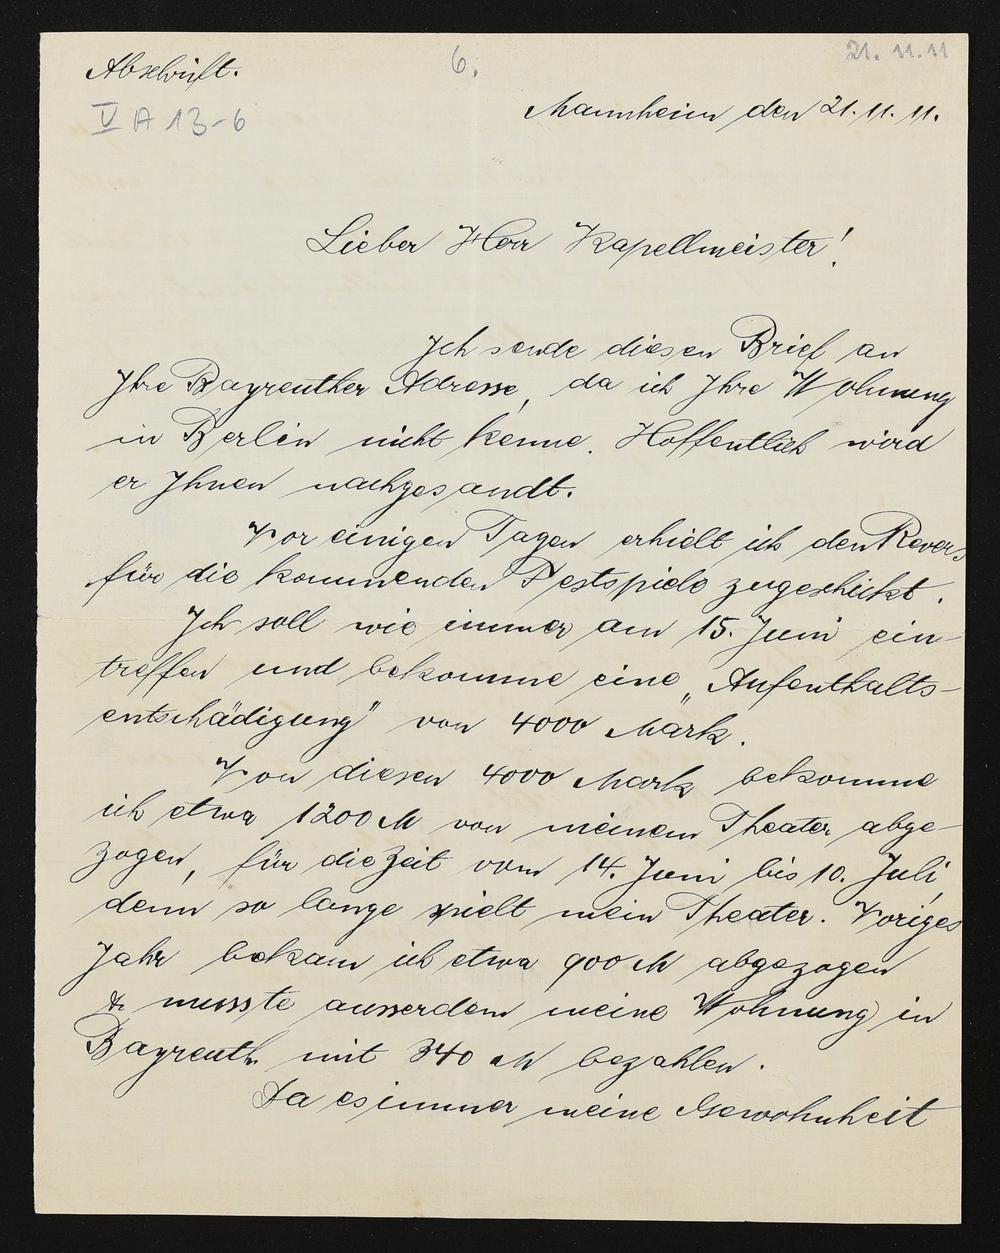 Abschrift.
6.
21. 11. 11
V A 13-6
Mannheim den 21. 11. 11.
Lieber Herr Kapellmeister!
Ich sende diesen Brief an
Ihre Bayreuther Adresse, da ich Ihre Wohnung
in Berlin nicht kenne. Hoffentlich wird
er Ihnen nachgesandt.
Vor einigen Tagen erhielt ich den Revers
für die kommenden Festspiele zugeschickt.
Ich soll wie immer am 15. Juni ein-
treffen und bekomme eine „Aufenthalts-
entschädigung" von 4000 Mark.
Von diesen 4000 Mark bekomme
ich etwa 1200 M von meinem Theater abge-
zogen, für die Zeit vom 14. Juni bis 10. Juli,
denn so lange spielt mein Theater. Voriges
Jahr bekam ich etwa 900 M abgezogen
& musste ausserdem meine Wohnung in
Bayreuth mit 340 M bezahlen.
Da es immer meine Gewohnheit